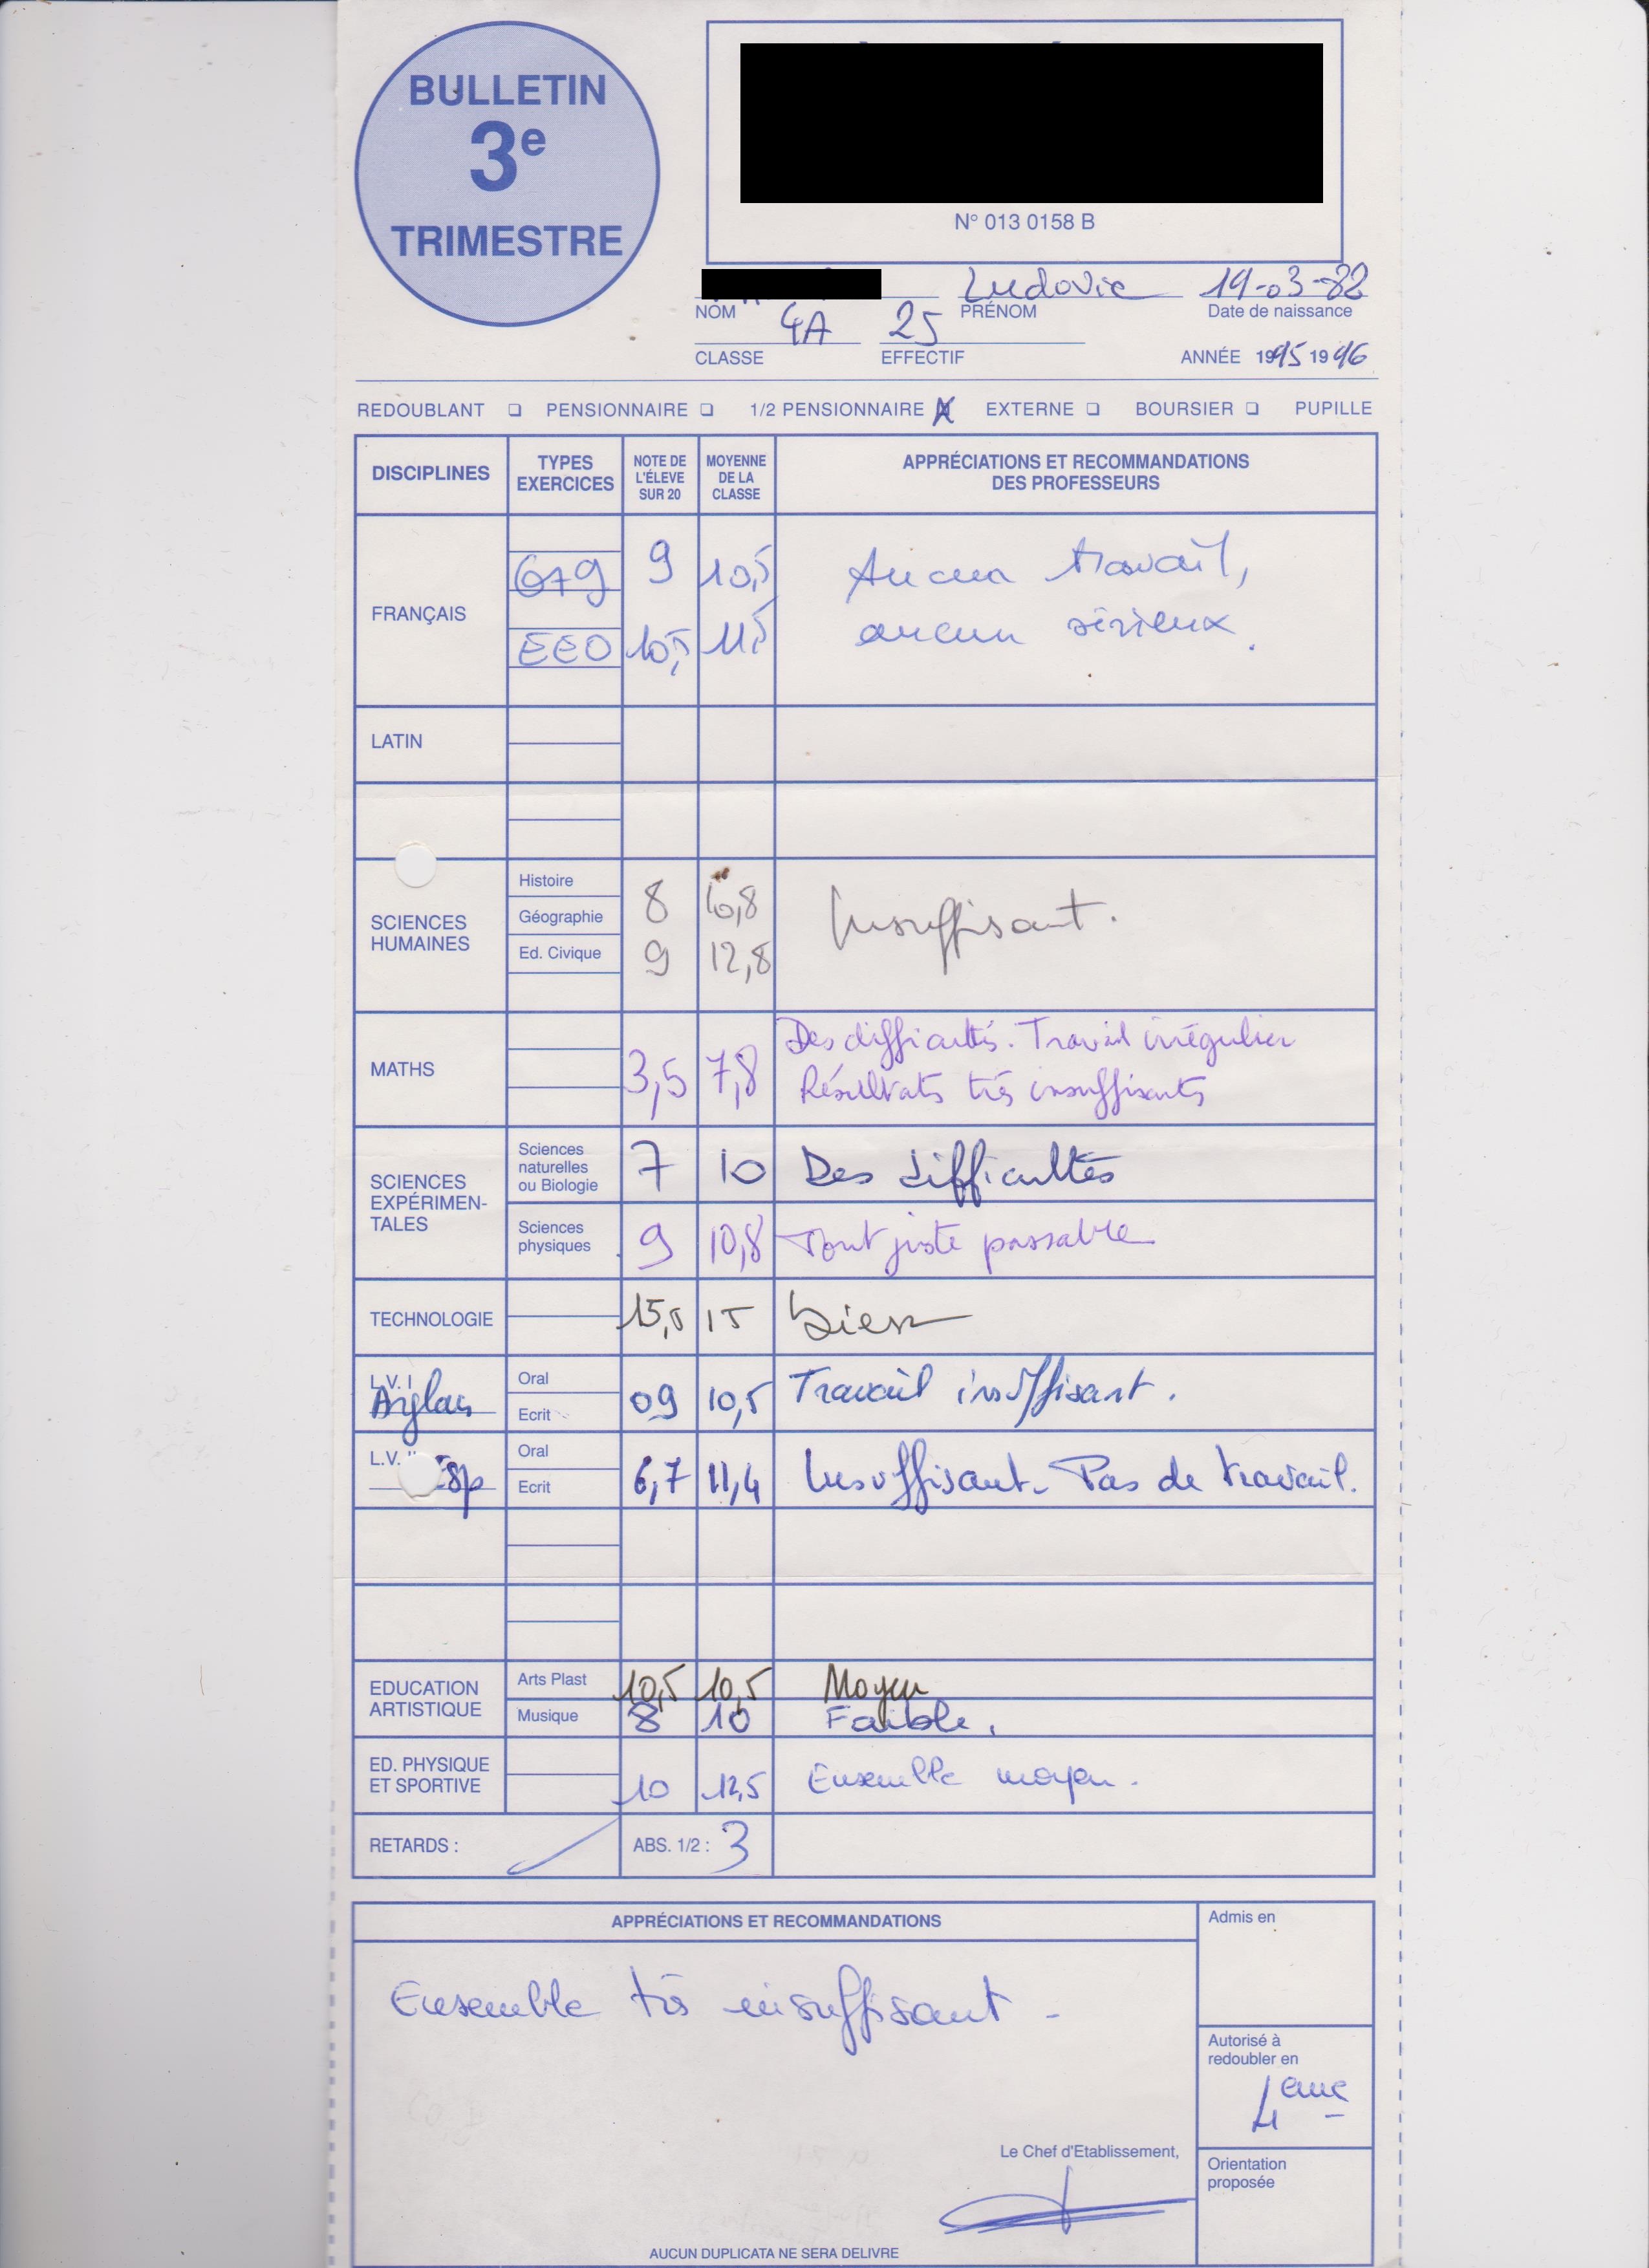 BULLETIN
3e
TRIMESTRE
N° 013 0158 B
Ludovic 19-03-82
NOM PRÉNOM Date de naissance
4A 25
CLASSE EFFECTIF ANNÉE 1995 1996
REDOUBLANT PENSIONNAIRE 1/2 PENSIONNAIRE X EXTERNE BOURSIER PUPILLE
DISCIPLINES TYPES EXERCICES NOTE DE L'ÉLEVE SUR 20 MOYENNE DE LA CLASSE APPRÉCIATIONS ET RECOMMANDATIONS DES PROFESSEURS
FRANÇAIS
9 10,5 Aucun travail,
EEO 10,5 11,5 aucun sérieux.
LATIN
SCIENCES HUMAINES
Histoire
Géographie 8 10,8 Insuffisant.
Ed. Civique 9 12,8
MATHS 3,5 7,8 Des difficultés. Travail irrégulier
Résultats très insuffisants
SCIENCES EXPÉRIMEN-TALES
Sciences naturelles ou Biologie 7 10 Des difficultés
Sciences physiques 9 10,8 Tout juste passable
TECHNOLOGIE 15,5 15 bien
L.V. I Anglais Oral
Ecrit 09 10,5 Travail insuffisant.
L.V. Esp Oral
Ecrit 6,7 11,4 Insuffisant. Pas de travail.
EDUCATION ARTISTIQUE
Arts Plast 10,5 10,5 Moyen
Musique 8 10 Faible.
ED. PHYSIQUE ET SPORTIVE 10 12,5 Ensemble moyen.
RETARDS : ABS. 1/2 : 3
APPRÉCIATIONS ET RECOMMANDATIONS
Admis en
Ensemble très insuffisant -
Autorisé à redoubler en
4eme
Le Chef d'Etablissement,
Orientation proposée
AUCUN DUPLICATA NE SERA DELIVRE